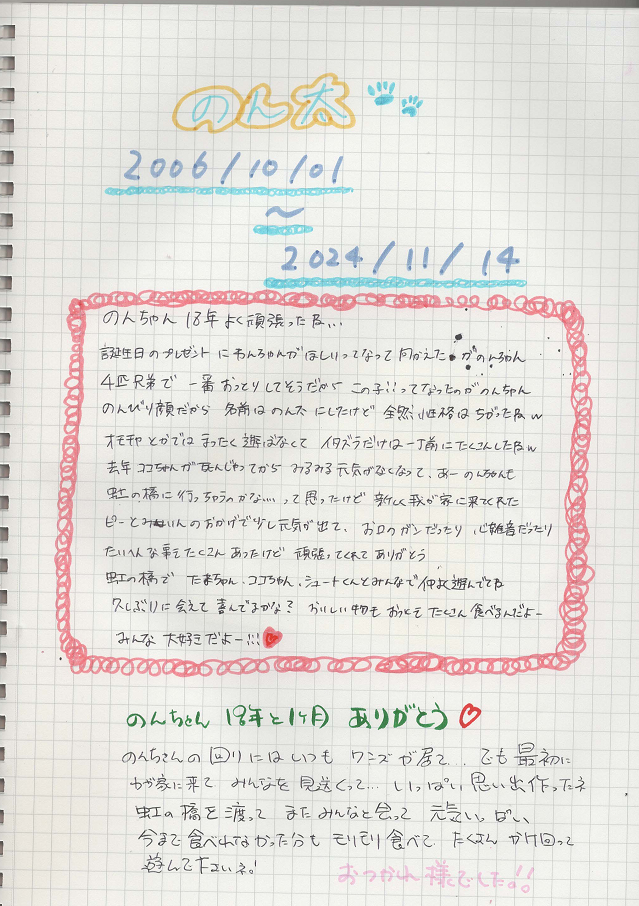 のん太
2006/10/01
～
2024/11/14
のんちゃん 18年よく頑張ったね...
誕生日のプレゼントにわんちゃんがほしいってなって向かえたがのんちゃん
4匹兄弟で一番おっとりしてそうだから この子!!ってなったのがのんちゃん
のんびり顔だから 名前はのん太にしたけど 全然性格はちがったねw
オモチャとかではまったく遊ばなくて イタズラだけは一丁前にたくさんしたねw
去年ココちゃんが死んじゃってから みるみる元気がなくなって、あーのんちゃんも
虹の橋に行っちゃうのかな... って思ったけど 新しく我が家に来てくれた
ピーとみーいんのおかげで少し元気が出て、お口のガンだったり 心雑音だったり
たいへんな事もたくさんあったけど 頑張ってくれてありがとう
虹の橋で たまちゃん、ココちゃん、シュートくんとみんなで仲良く遊んでね
久しぶりに会えて喜んでるかな? おいしい物もおっともたくさん食べるんだよー
みんな大好きだよー!!!
のんちゃん 18年と1ヶ月 ありがとう
のんちゃんの回りにはいつも ワンズが居て... でも最初に
わが家に来て みんなを見送くって... いっぱい思い出作ったネ
虹の橋を渡って またみんなと会って 元気いっぱい
今まで食べれなかった分も モリモリ食べて たくさん かけ回って
遊んで下さいネ!
おつかれ様でした!!